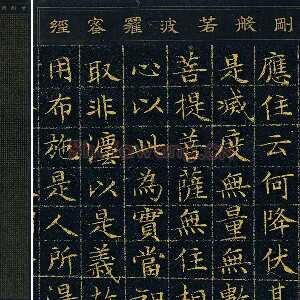 剛般若波羅密經
應住云何降伏其
是滅度無量無數
菩提菩薩無住相
心以此為實當
取非灋以是義故
用布施是人所